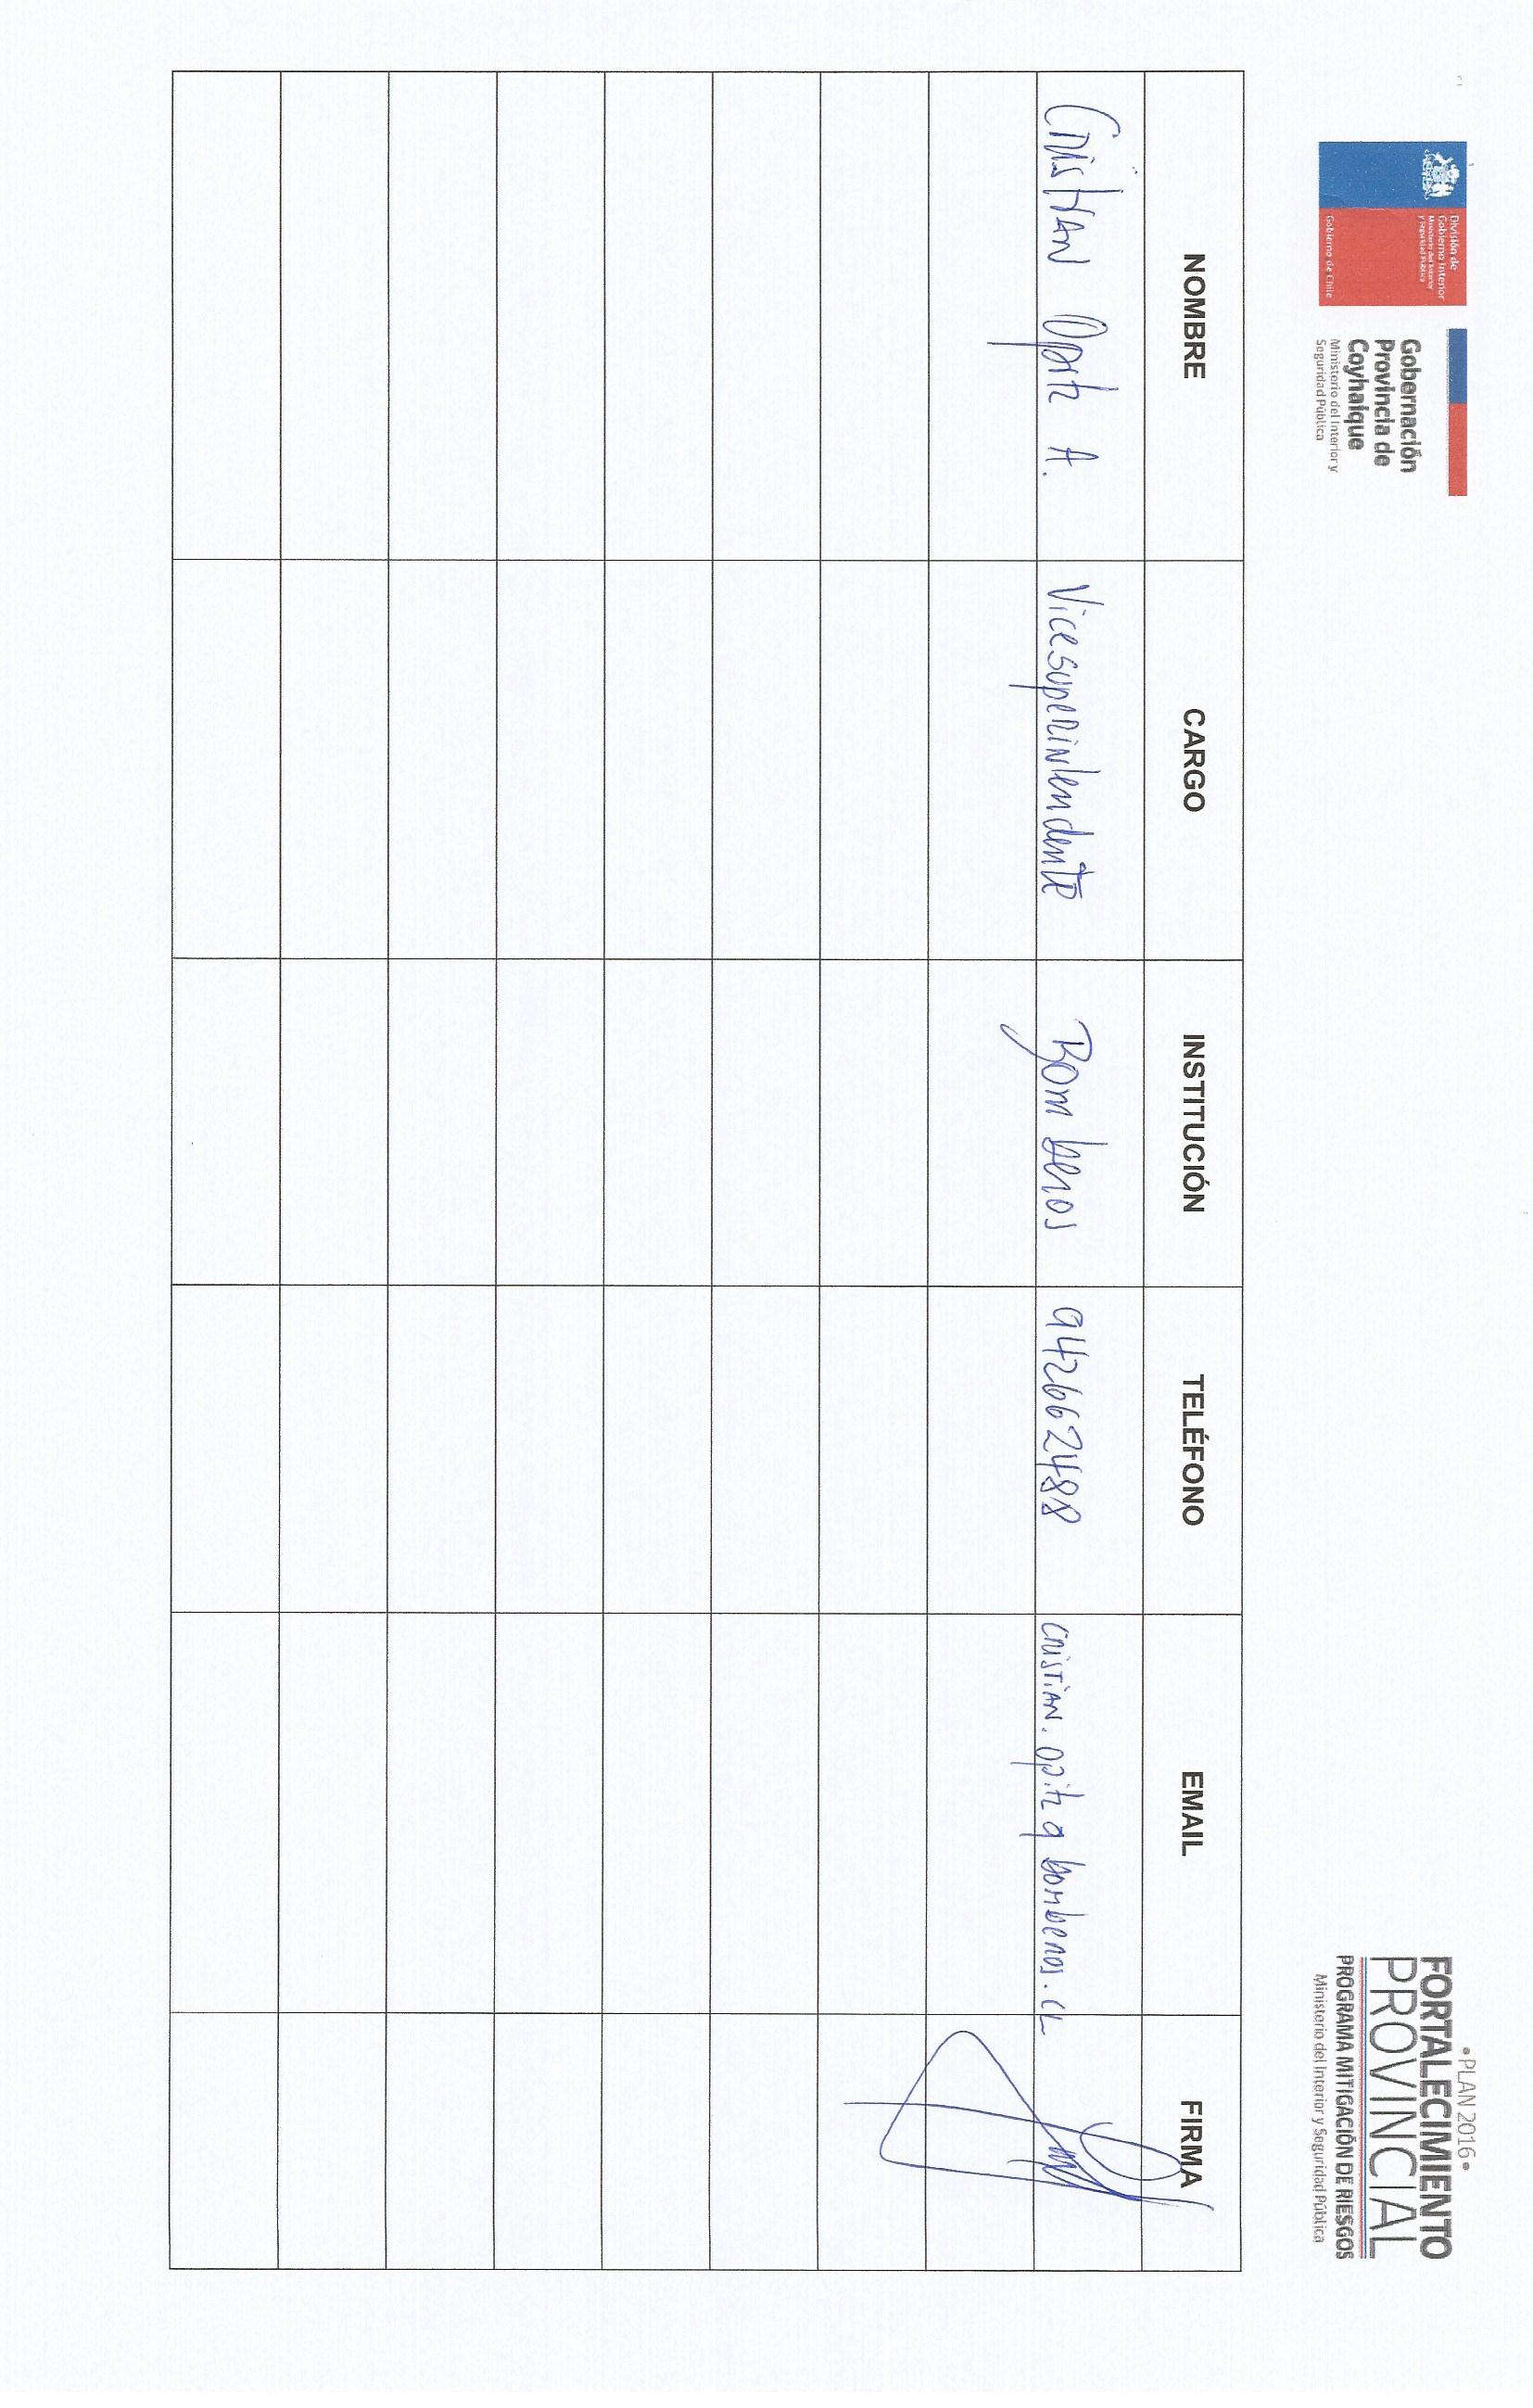 División de
Gobierno Interior
Ministerio del Interior
y Seguridad Pública
Gobierno de Chile
Gobernación
Provincia de
Coyhaique
Ministerio del Interior y
Seguridad Pública
•PLAN 2016•
FORTALECIMIENTO
PROVINCIAL
PROGRAMA MITIGACIÓN DE RIESGOS
Ministerio del Interior y Seguridad Pública
NOMBRE CARGO INSTITUCIÓN TELÉFONO EMAIL FIRMA
Cristian Opitz A. Vicesuperintendente Bomberos 942662488 cristian.opitz@bomberos.cl